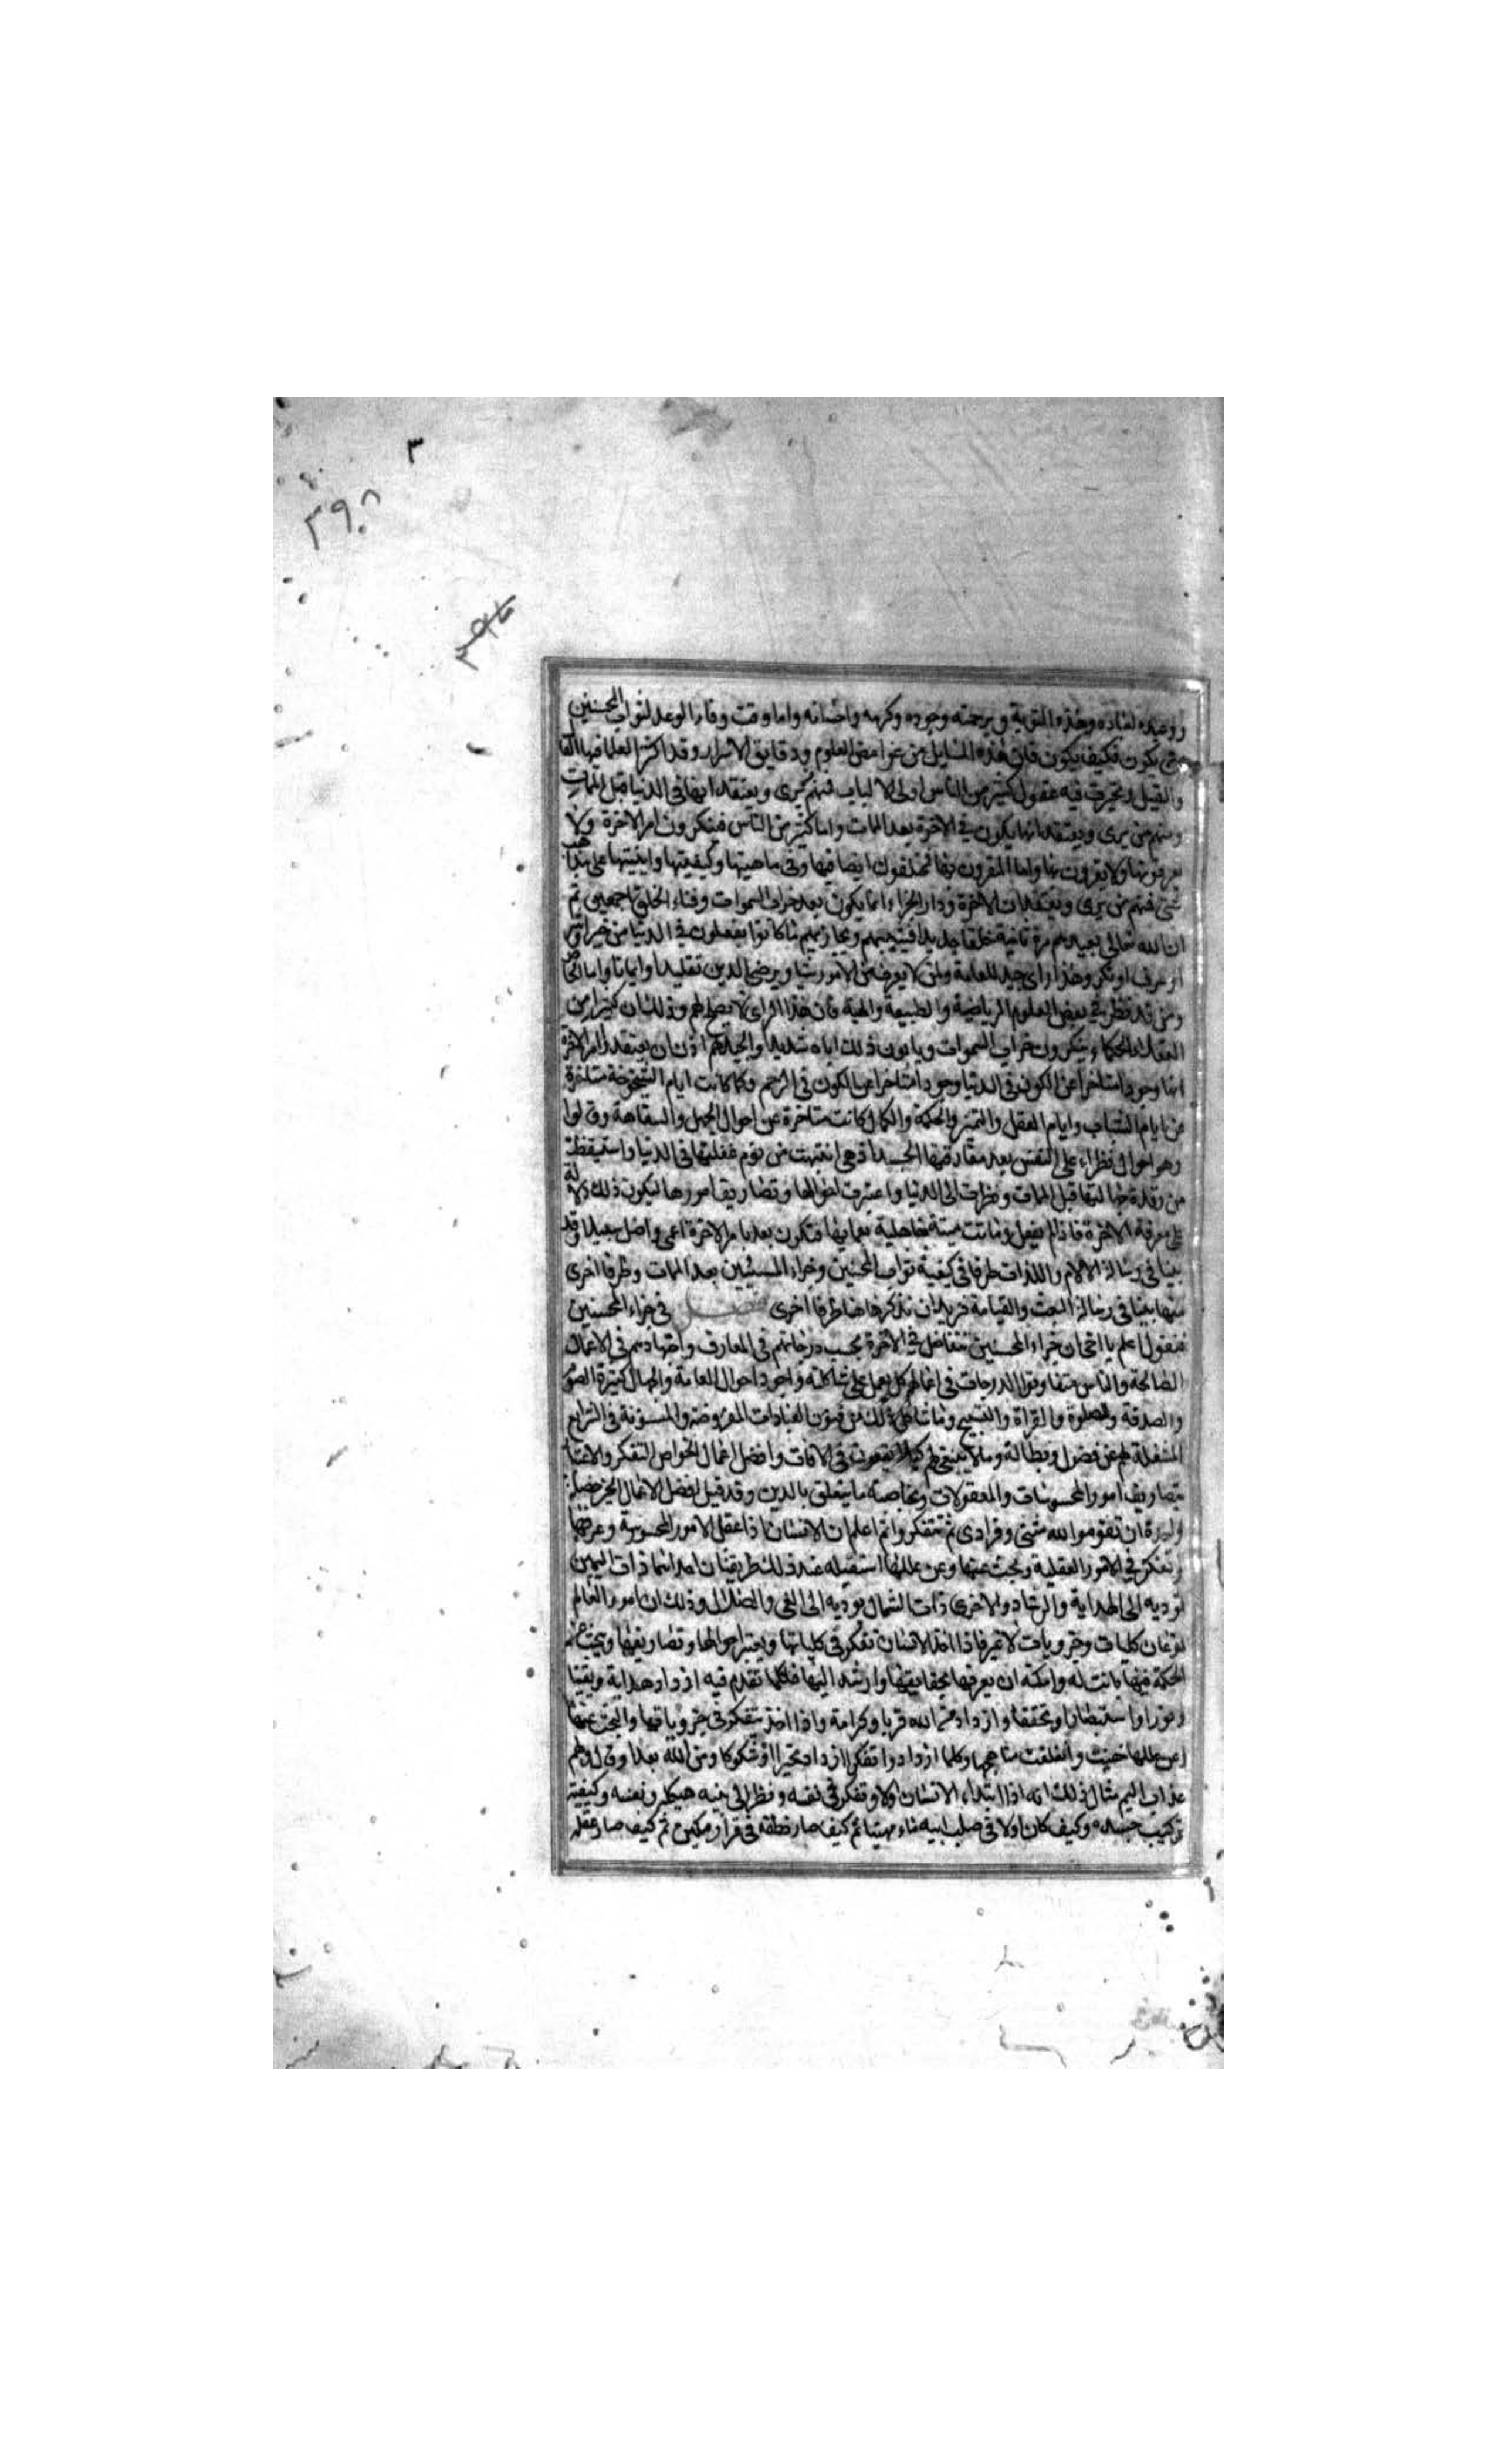 ٣
٣٩٠٨
ووعده لعباده وهذه التربة وبرحمته وجوده وكرمه واحسانه واما وقت وفاء الوعد لثواب المحسنين
متى يكون فكيف يكون فان هذه المسايل من غوامض العلوم ودقايق الاسرار وقد اكثر العلما فيها القا
والقيل وتحيرت فيه عقول كثير من الناس اولى الالباب فمنهم يرى ويعتقد انها فى الدنيا قبل الممات
ومنهم من يرى ويعتقد انها يكون فى الاخرة بعد الممات واما كثير من الناس فينكرون امر الاخرة ولا
يعرفونها ولا يقرون بها واما المقرون بها فمختلفون ايضا فيها وفى ماهيتها وكيفيتها واينيتها على مذاهب
شتى فمنهم من يرى ويعتقد بان الاخرة ودار الجزاء انما يكون بعد خراب السموات وفناء الخلق اجمعين ثم
ان الله تعالى يعيدهم مرة ثانية خلقا جديدا فيثيبهم ويجازيهم بما كانوا يفعلون فى الدنيا من خير او شر
او عرف او نكر وهذا راى جيد للعامة ولمن لا يعرف من الامور شيا ويرضى الدين تقليدا وايمانا واما الخا
ومن قد نظر فى بعض العلوم الرياضية والطبيعة والهية فان هذا الراى لا يصلح لهم وذلك ان كثيرا من
العقلاء الحكماء ينكرون خراب السموات ويابون ذلك اباء شديدا والجيد لهم اذن ان يعتقدوا امر الاخرة
انها وجود متاخر عن الكون فى الدنيا وجودا متاخرا عن الكون فى الرحم وكما كانت ايام الشيخوخة متاخرة
عن ايام الشباب وايام العقل والتميز والحكمة والكمال كانت متاخرة عن احوال الجهل والسفاهة وقالوا
وهو احوال نظراء على النفس بعد مفارقتها الجسد اذ هى انتبهت من نوم غفلتها فى الدنيا واستيقظت
من رقدة جهالتها قبل الممات ونظرت الى الدنيا واعتبرت احوالها وتصاريف امورها ليكون ذلك دلالة
على معرفة الاخرة فاذا لم يفعل وماتت ميتة جاهلية بعمايها فتكون بعد بامر الاخرة اعمى واضل سبيلا وقد
بينا فى رسالة الالام واللذات طرفا فى كيفية ثواب المحسنين وجزاء المسيئين بعد الممات وطرفا اخرى
منها بينا فى رسالة البعث والقيامة فريد ان نذكرها هنا طرفا اخرى فصل فى جزاء المحسنين
فنقول اعلم يا اخى ان جزاء المحسنين متفاضل فى الاخرة بحسب درجاتهم فى المعارف واجتهادهم فى الاعمال
الصالحة والناس متفاوتوا الدرجات فى اعمالهم كل يعمل على شاكلته واجود احوال العامة والجهال كثيرة الصوم
والصدقة والصلوة والقراة والتسبيح وما شاكل ذلك من فنون العبادات المفروضة والمسنونة فى الشرايع
المشغلة لهم عن فضول وبطالة وما لا ينبغى لهم كيلا يقعون فى الافات وافضل اعمال الخواص التفكر والاعتبا
بتصاريف امور المحسوسات والمعقولات وبخاصة ما يتعلق بالدين وقد قيل افضل الاعمال الخير خصلة
واحدة ان تقوموا لله مثنى وفرادى ثم تتفكروا ثم اعلم ان الانسان اذا عقل الامور المحسوسة وعرفها
وتفكر فى الامور العقلية وبحث عنها وعن عللها استقبله عند ذلك طريقتان احدانها ذات اليمين
توديه الى الهداية والرشاد والاخرى ذات الشمال توديه الى الغى والضلال وذلك ان امور العالم
نوعان كليات وجزويات لا غير فاذا اخذ الانسان تفكر فى كلياتها ويعتبر احوالها وتصاريفها ويبحث عن
الحكمة فيها بانت له وامكنه ان يعرفها بحقايقها وارشد اليها فكلما تقدم فيه ازداد هداية ويقينا
ونورا واستبصارا وتحققا وازداد من الله قربا وكرامة واذا اخذ يتفكر فى جزوياتها والبحث عنها
وعن عللها خفيت وانغلقت مناهجها وكلما ازدادوا تفكرا ازداد تحيرا وشكوكا ومن الله بعدا وق
عذاب اليم مثال ذلك انه اذا ابتداء الانسان اولا وتفكر فى نفسه ونظر الى بنيه هيكله ونفسه وكيفية
تركيب جسده وكيف كان اولا فى صلب ابيه ماء مهينا ثم كيف صار نطفة فى قرار مكين ثم كيف صار علقة